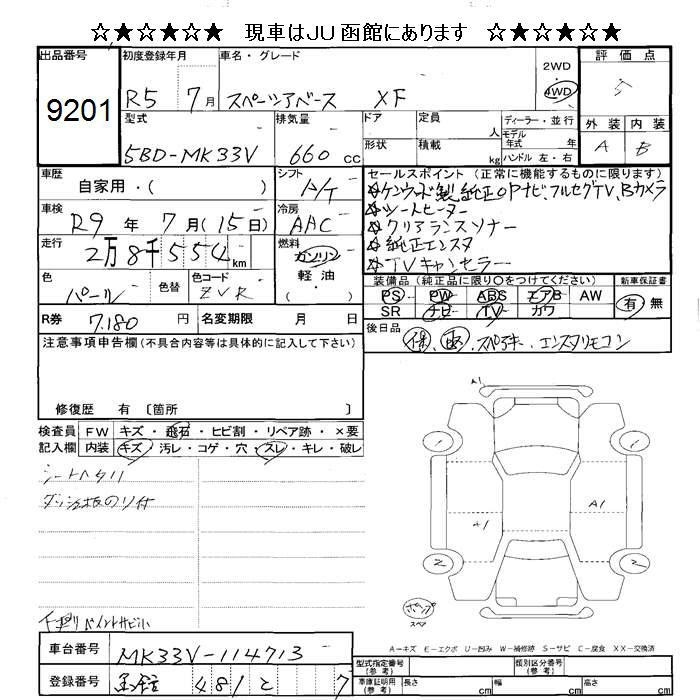 ☆★☆★☆★ 現車はJU函館にあります ☆★☆★☆★
出品番号 初度登録年月 車名・グレード 2WD 4WD 評価点
9201 R5 7月 スペーシアベース XF 5
型式 排気量 ドア 定員 人 ディーラー・並行 外装 内装
5BD-MK33V 660cc 形状 積載 kg モデル年式 年 ハンドル 左・右 A B
車歴 自家用・( ) シフト A/T セールスポイント (正常に機能するものに限ります)
☆ケンウッド製純正OPナビ、フルセグTV、Bカメラ
☆シートヒーター
車検 R9年7月(15日) 冷房 AAC
☆クリアランスソナー
☆純正エンスタ
走行 2万8千554km 燃料 ガソリン 軽油 ( )
☆TVキャンセラー
色 パール 色替 色コード ZVR
装備品 (純正品に限り○をつけてください) 新車保証書
PS PW ABS エアB AW 有 無
SR ナビ TV カワ
R券 7.180円 名変期限 月 日
後日品 保、取、スペアキー、エンスタリモコン
注意事項申告欄 (不具合内容等は具体的に記入して下さい)
修復歴 有 〔箇所 〕
検査員記入欄 FW キズ・飛石・ヒビ割・リペア跡・×要
内装 キズ・汚レ・コゲ・穴・スレ・キレ・破レ
シートヘタリ
ダッシュ板のり付
A1
1 1
A1 A1
2 2
下廻りペイントサビ小
スペア
A-キズ E-エクボ U-凹み W-補修跡 S-サビ C-腐食 XX-交換済
車台番号 MK33V-114713
型式指定番号(参考) 類別区分番号(参考)
登録番号 函館 481 と 7
車庫証明用(参考) 長さ cm 幅 cm 高さ cm